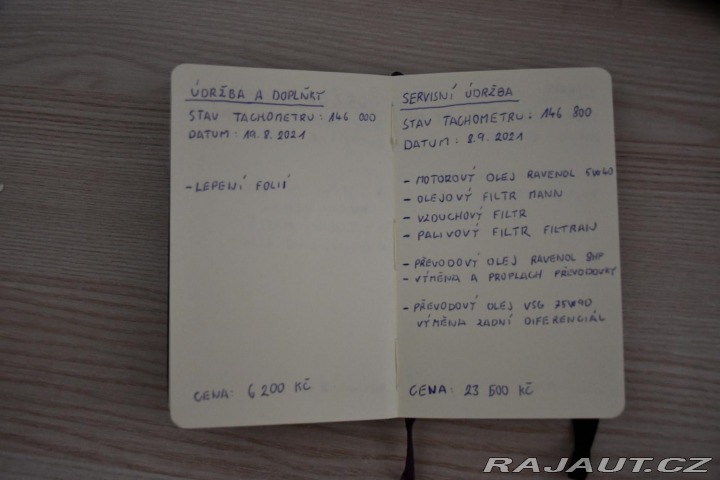 ÚDRŽBA A DOPLŇKY
STAV TACHOMETRU: 146 000
DATUM: 19.8.2021
- LEPENÍ FOLIÍ
CENA: 6 200 KČ
SERVISNÍ ÚDRŽBA
STAV TACHOMETRU: 146 800
DATUM: 8.9.2021
- MOTOROVÝ OLEJ RAVENOL 5W40
- OLEJOVÝ FILTR MANN
- VZDUCHOVÝ FILTR
- PALIVOVÝ FILTR FILTRAN
- PŘEVODOVÝ OLEJ RAVENOL 8HP
- VÝMĚNA A PROPLACH PŘEVODOVKY
- PŘEVODOVÝ OLEJ VSG 75W90
VÝMĚNA ZADNÍ DIFERENCIÁL
CENA: 23 500 KČ
RAJAUT.CZ